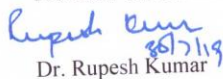 Rupesh Kumar
30/7/18
Dr. Rupesh Kumar